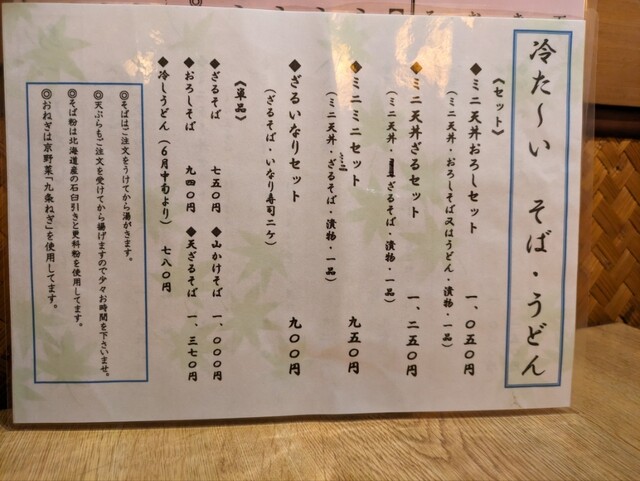 冷た〜い そば・うどん
《セット》
◆ミニ天丼おろしセット 一、〇五〇円
（ミニ天丼・おろしそば又はうどん・漬物・一品）
◆ミニ天丼ざるセット 一、二五〇円
（ミニ天丼・ざるそば・漬物・一品）
◆ミニミニセット 九五〇円
（ミニ天丼・ミニざるそば・漬物・一品）
◆ざるいなりセット 九〇〇円
（ざるそば・いなり寿司二ケ）
《単品》
◆ざるそば 七五〇円 ◆山かけそば 一、〇〇〇円
◆おろしそば 九四〇円 ◆天ざるそば 一、三七〇円
◆冷しうどん（６月中旬より） 七八〇円
◎そばはご注文をうけてから湯がきます。
◎天ぷらもご注文を受けてから揚げますので少々お時間を下さいませ。
◎そば粉は北海道産の石臼引きと更科粉を使用してます。
◎おねぎは京野菜「九条ねぎ」を使用してます。